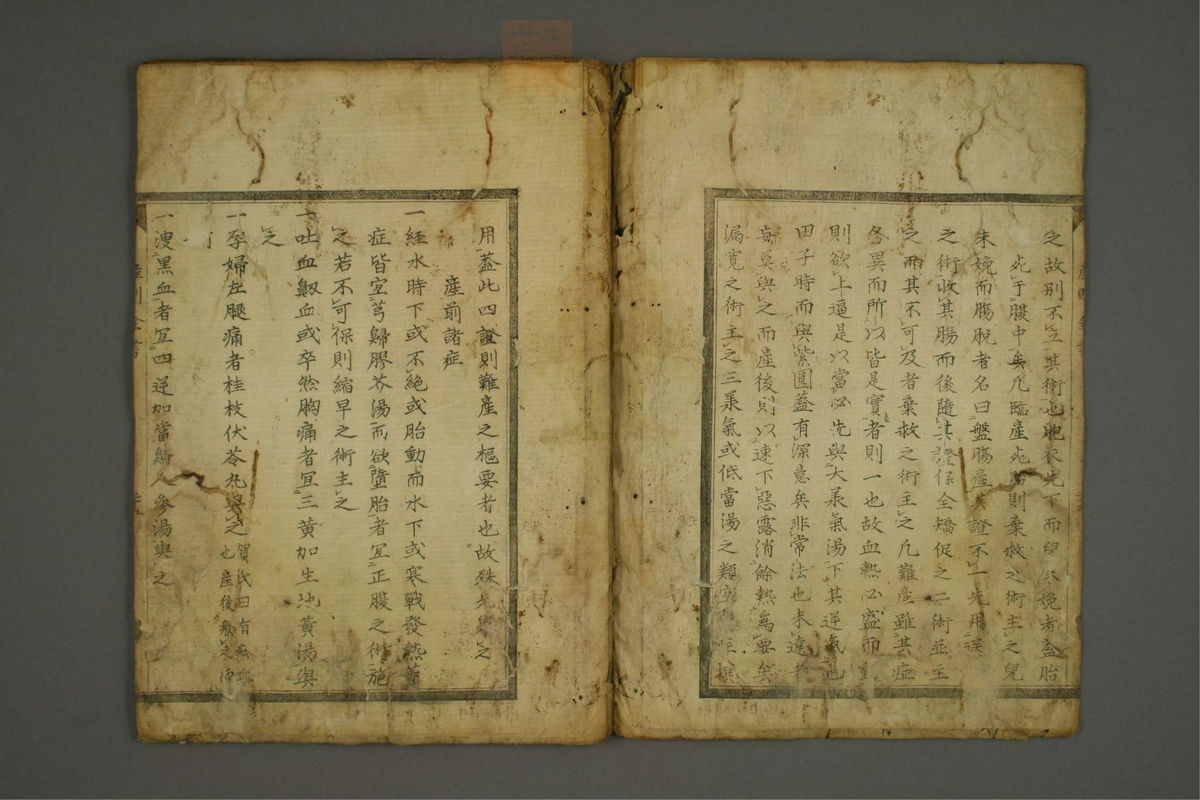 之故別不立其術也胞衣先下而兒不娩者盖胎
死于腹中矣凡臨産死胎則棄救之術主之兒
未娩而腸脱者名曰盤腸産其證不一先用
之術收其腸而後隨其證保全矯促之二術並主
之而其不可及者棄救之術主之凡難産雖其症
各異而所以皆是實者則一也故血熱必盛而
則欲上逼是以當必先與大承氣湯下其逆氣也
田子時而與紫圓蓋有深意矣非常法也未達
莫與之而産後則以速下惡露消餘熱為要矣
漏寛之術主之三承氣或低當湯之類
用蓋此四證則難産之樞要者也故殊先之
産前諸症
一経水時下或不絶或胎動而水下或寒戰發熱等
症皆宜芎歸膠艾湯而欲墮胎者宜正腹之術施
之若不可保則縮早之術主之
一吐血衄血或卒然胸痛者宜三黄加生地黄湯與
之
一孕婦左腿痛者桂枝伏苓丸與之賀氏曰有
也産後療之而
可
一溲黒血者宜四逆加當歸人參湯與之